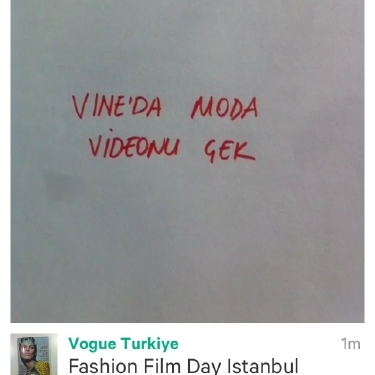 VINE'DA MODA
VİDEONU ÇEK
Vogue Turkiye
1m
Fashion Film Day Istanbul